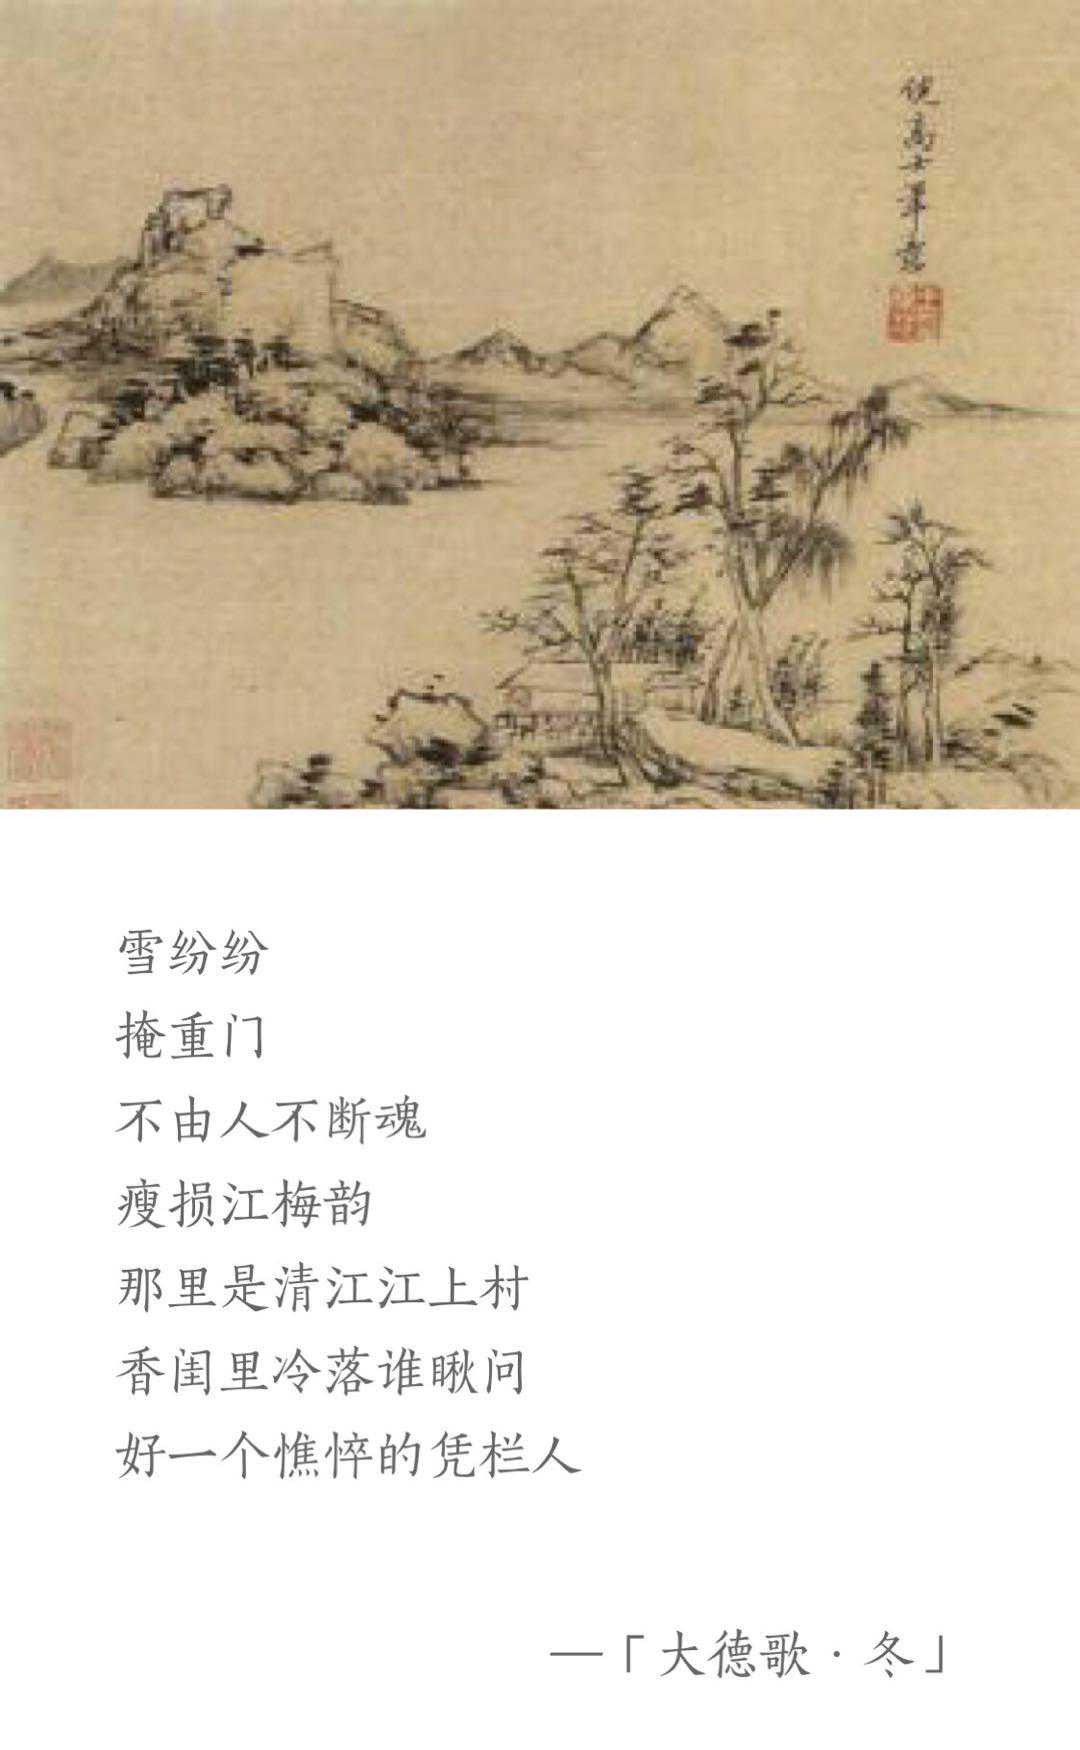 倪高士筆意
雪纷纷
掩重门
不由人不断魂
瘦损江梅韵
那里是清江江上村
香闺里冷落谁瞅问
好一个憔悴的凭栏人
—「大德歌 · 冬」